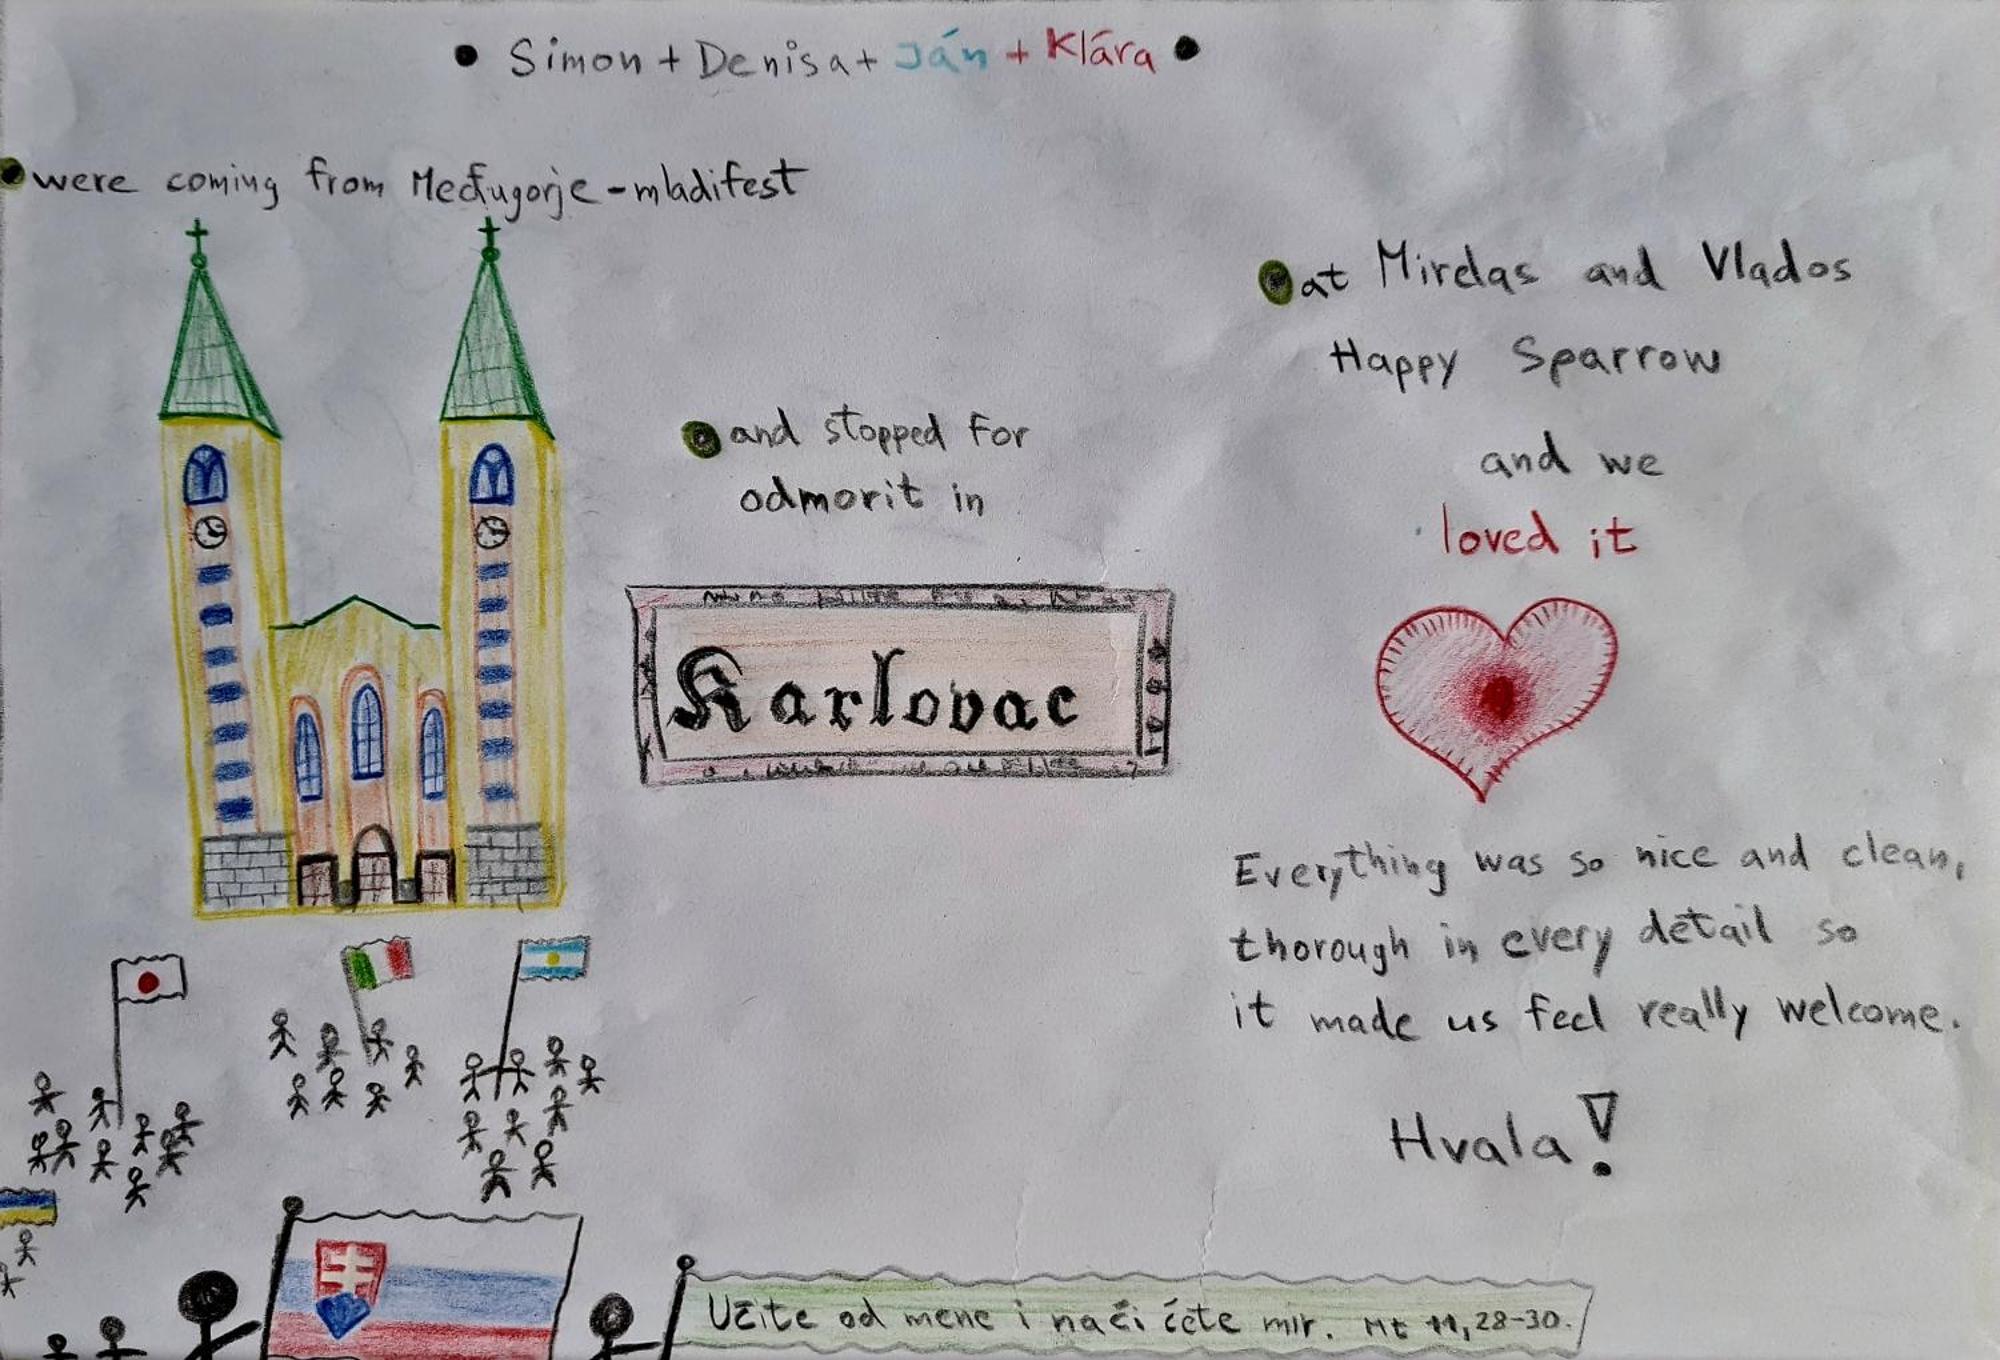 • Simon + Denisa + Ján + Klára •
• were coming from Međugorje - mladifest
• and stopped for
odmorit in
Karlovac
• at Mirelas and Vlados
Happy Sparrow
and we
loved it
Everything was so nice and clean,
thorough in every detail so
it made us feel really welcome.
Hvala!
Učite od mene i naći ćete mir. Mt 11, 28-30.